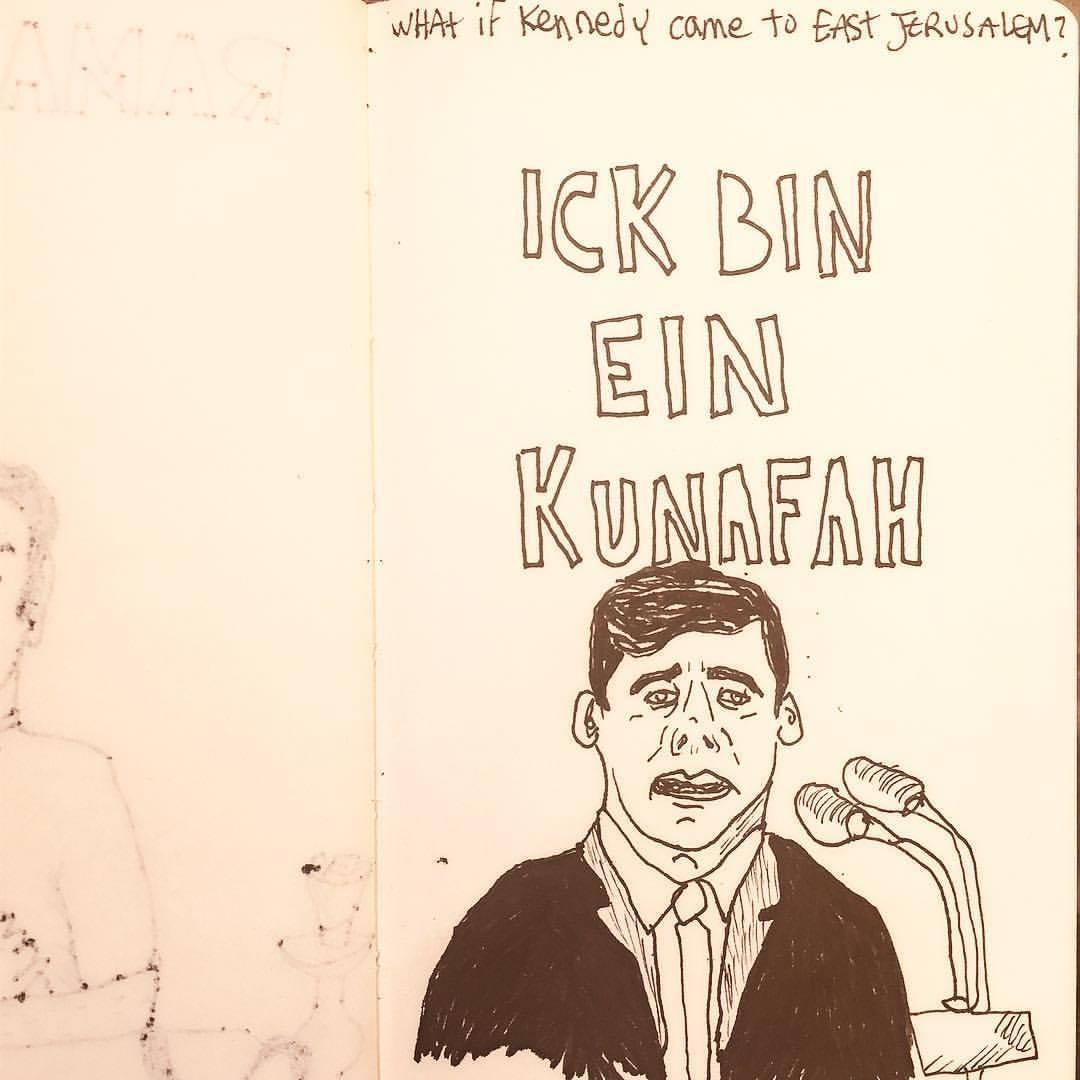 WHAT if Kennedy came to EAST JERUSALEM?
ICK BIN
EIN
KUNAFAH